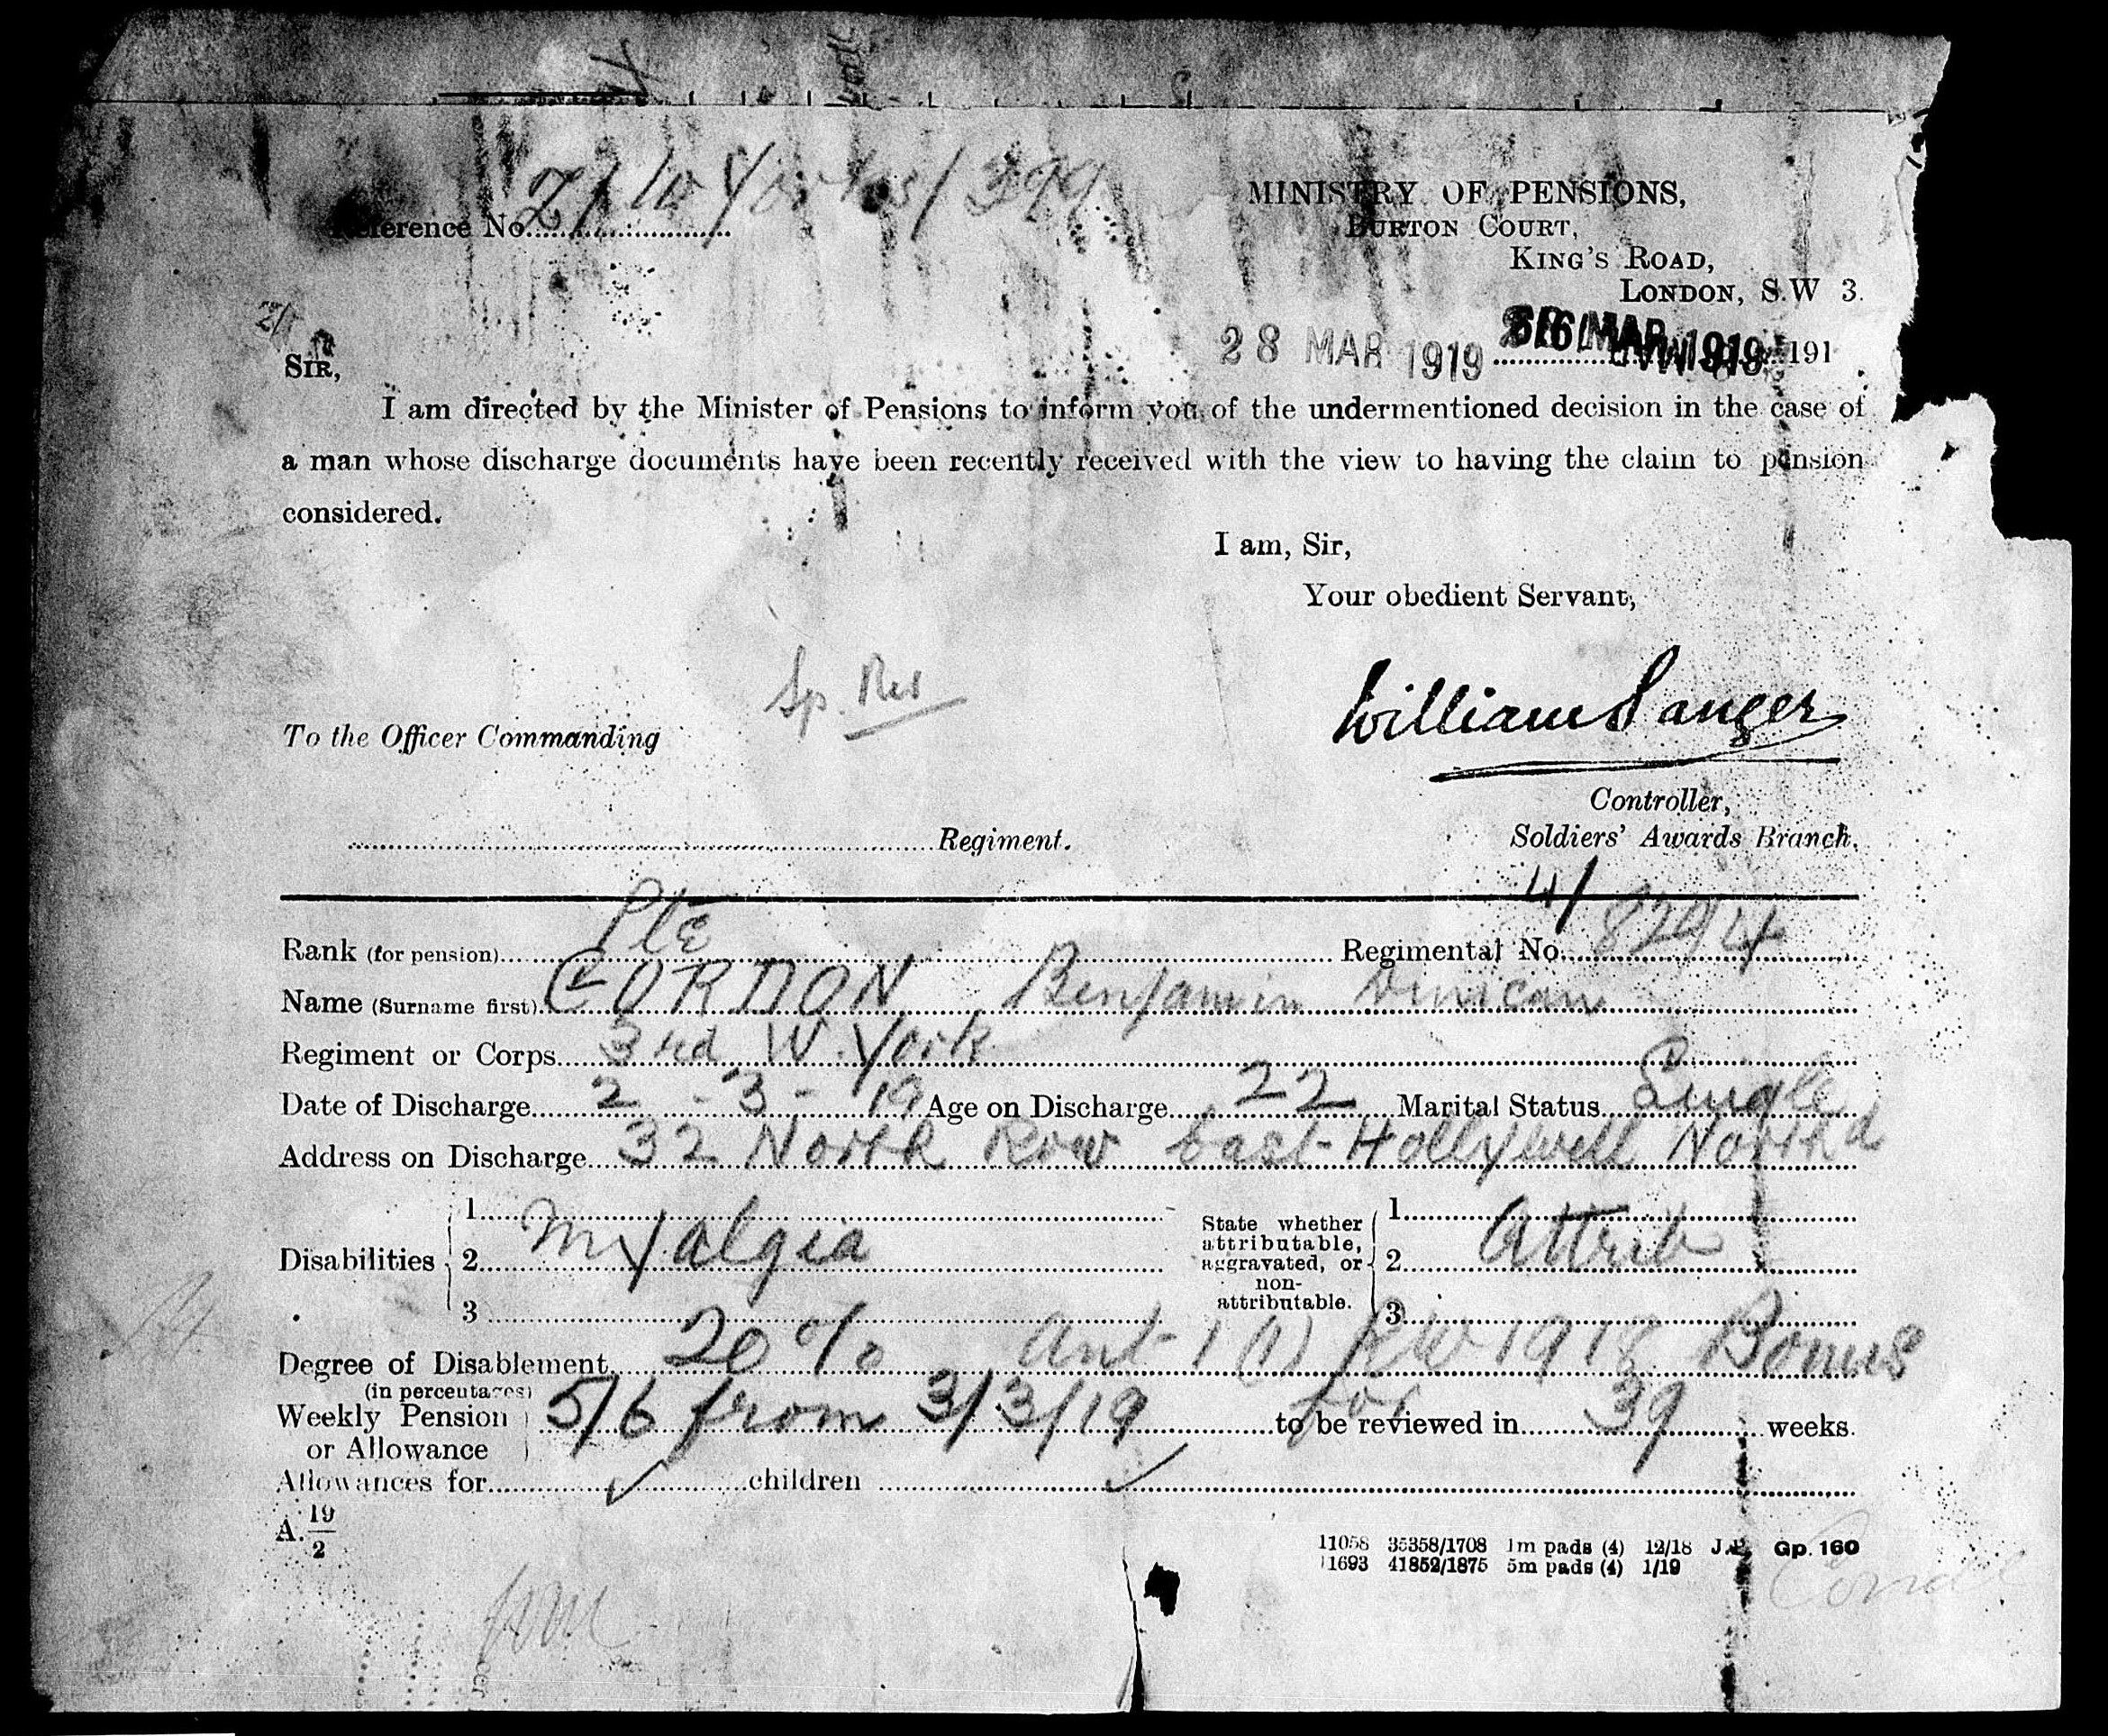 2/W Yorks/399
Reference No.
MINISTRY OF PENSIONS,
BURTON COURT,
KING'S ROAD,
LONDON, S.W 3.
2/
28 MAR 1919 MAR 1919 191
SIR,
I am directed by the Minister of Pensions to inform you of the undermentioned decision in the case of
a man whose discharge documents have been recently received with the view to having the claim to pension
considered.
I am, Sir,
Your obedient Servant,
Sp. Res
William Sanger
To the Officer Commanding
Controller,
Regiment. Soldiers' Awards Branch.
4/
Rank (for pension) Pte Regimental No. 8294
Name (Surname first) GORDON Benjamin Duncan
Regiment or Corps 3rd W. York
Date of Discharge 2 - 3 - 19 Age on Discharge 22 Marital Status Single
Address on Discharge 32 North Row East Hollywell North'd
Disabilities 1 2 Myalgia 3
State whether attributable, aggravated, or non-attributable. 1 2 Attrib 3
Degree of Disablement 20% Art 1 (1) RW 1918 Bonus
(in percentages)
Weekly Pension or Allowance 5/6 from 3/3/19 for to be reviewed in 39 weeks.
Allowances for ✓ children ✓
A. 19/2
11058 35358/1708 1m pads (4) 12/18 Gp. 160
11693 41852/1875 5m pads (4) 1/19